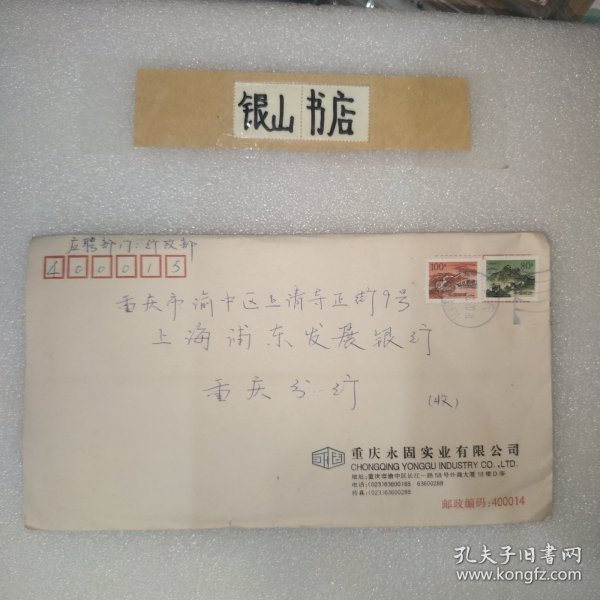 银山书店
应聘部门：行政部
400015
重庆市渝中区上清寺正街9号
上海浦东发展银行
重庆分行
(收)
100分
80分
重庆永固实业有限公司
CHONGQING YONGGU INDUSTRY CO.,LTD.
地址:重庆市渝中区长江一路58号外商大厦18楼D座
电话:(023)63600188 63600288
传真:(023)63600288
邮政编码:400014
孔夫子旧书网
www.kongfz.com